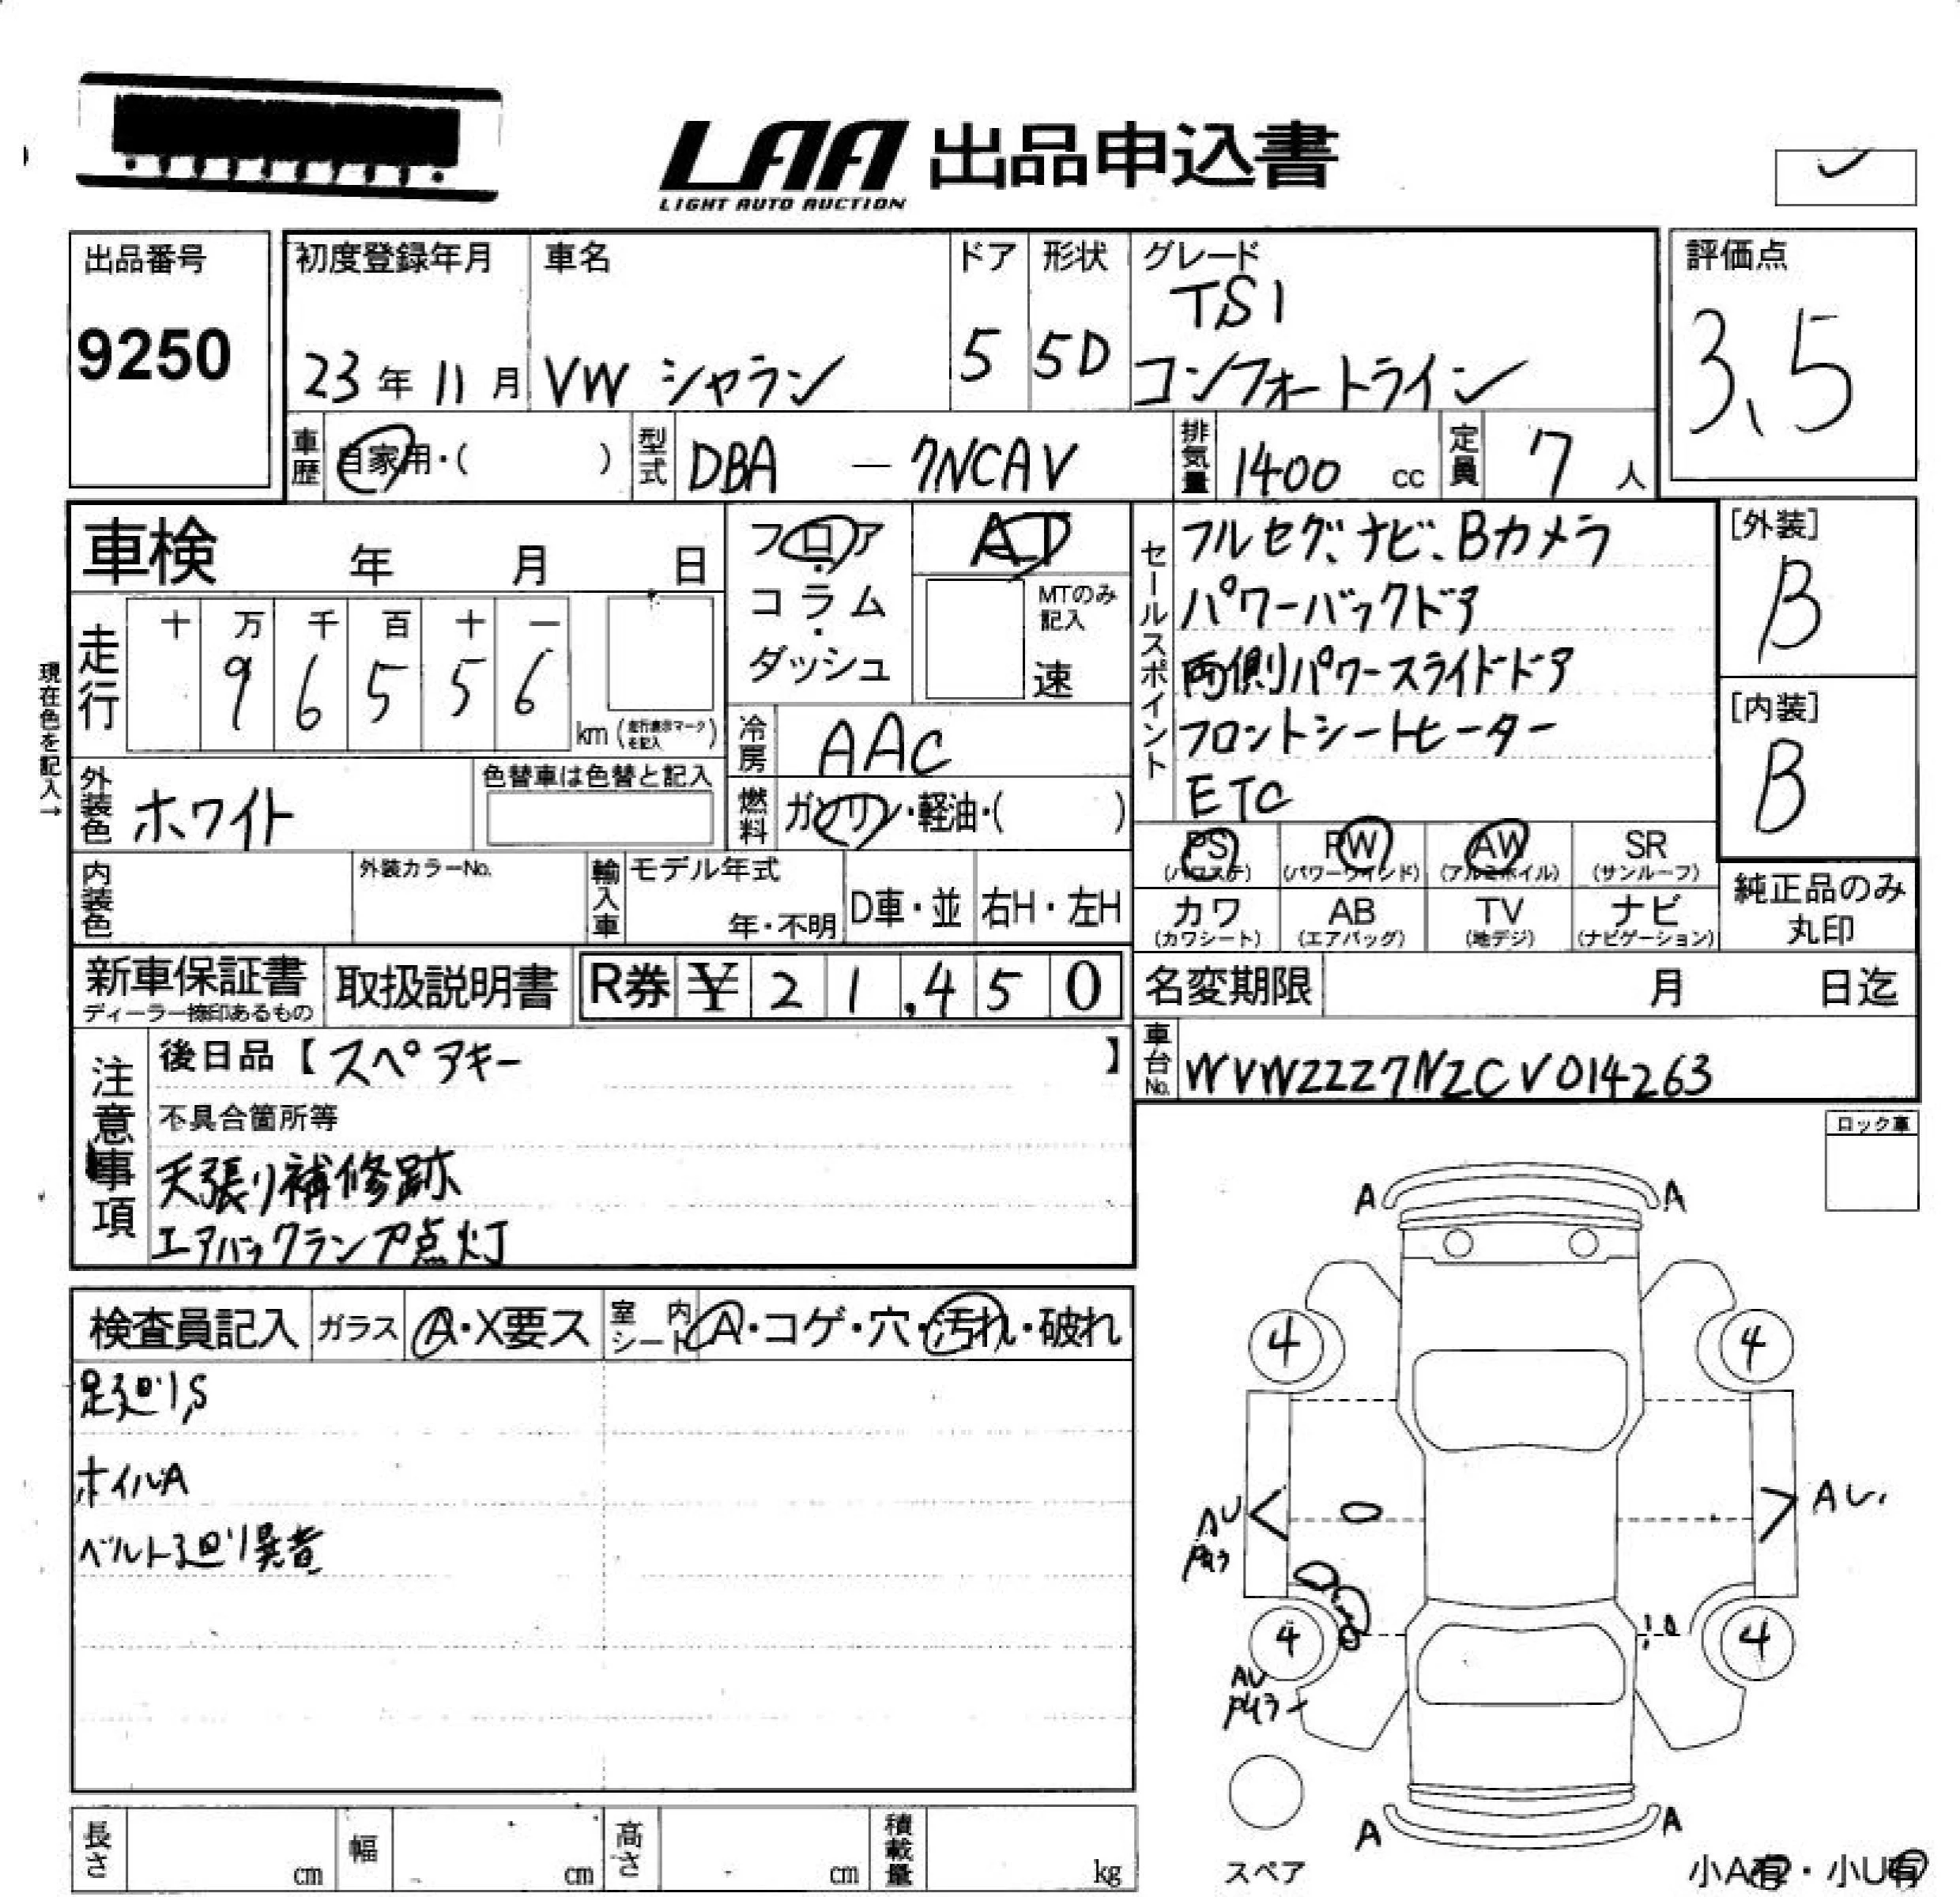 LAA 出品申込書
LIGHT AUTO AUCTION
出品番号
9250
初度登録年月
23年 11月
車名
VW シャラン
ドア
5
形状
5D
グレード
TSI
コンフォートライン
評価点
3.5
車歴
自家用・( )
型式
DBA — 7NCAV
排気量
1400 cc
定員
7 人
車検 年 月 日
走行
十 万 千 百 十 一
9 6 5 5 6
km (走行表示マークを記入)
現在色を記入→
フロア・コラム・ダッシュ
AT
MTのみ記入
速
冷房
AAC
燃料
ガソリン・軽油・( )
セールスポイント
フルセグ、ナビ、Bカメラ
パワーバックドア
両側パワースライドドア
フロントシートヒーター
ETC
[外装]
B
[内装]
B
外装色
ホワイト
色替車は色替と記入
内装色
外装カラーNo.
輸入車
モデル年式
年・不明
D車・並
右H・左H
PS
(パワステ)
PW
(パワーウインド)
AW
(アルミホイル)
SR
(サンルーフ)
カワ
(カワシート)
AB
(エアバッグ)
TV
(地デジ)
ナビ
(ナビゲーション)
純正品のみ
丸印
新車保証書
ディーラー捺印あるもの
取扱説明書
R券 ¥ 2 1,4 5 0
名変期限 月 日迄
車台No.
WVWZZZ7NZCV014263
注意事項
後日品【スペアキー 】
不具合箇所等
天張り補修跡
エアバックランプ点灯
ロック車
検査員記入
ガラス
A・X要ス
室内シート
A・コゲ・穴・汚れ・破れ
足廻りS
ホイルA
ベルト廻り異音
A A
4 4
AU
AU
4 4
AU
A A
スペア
小A有・小U有
長さ cm
幅 cm
高さ cm
積載量 kg